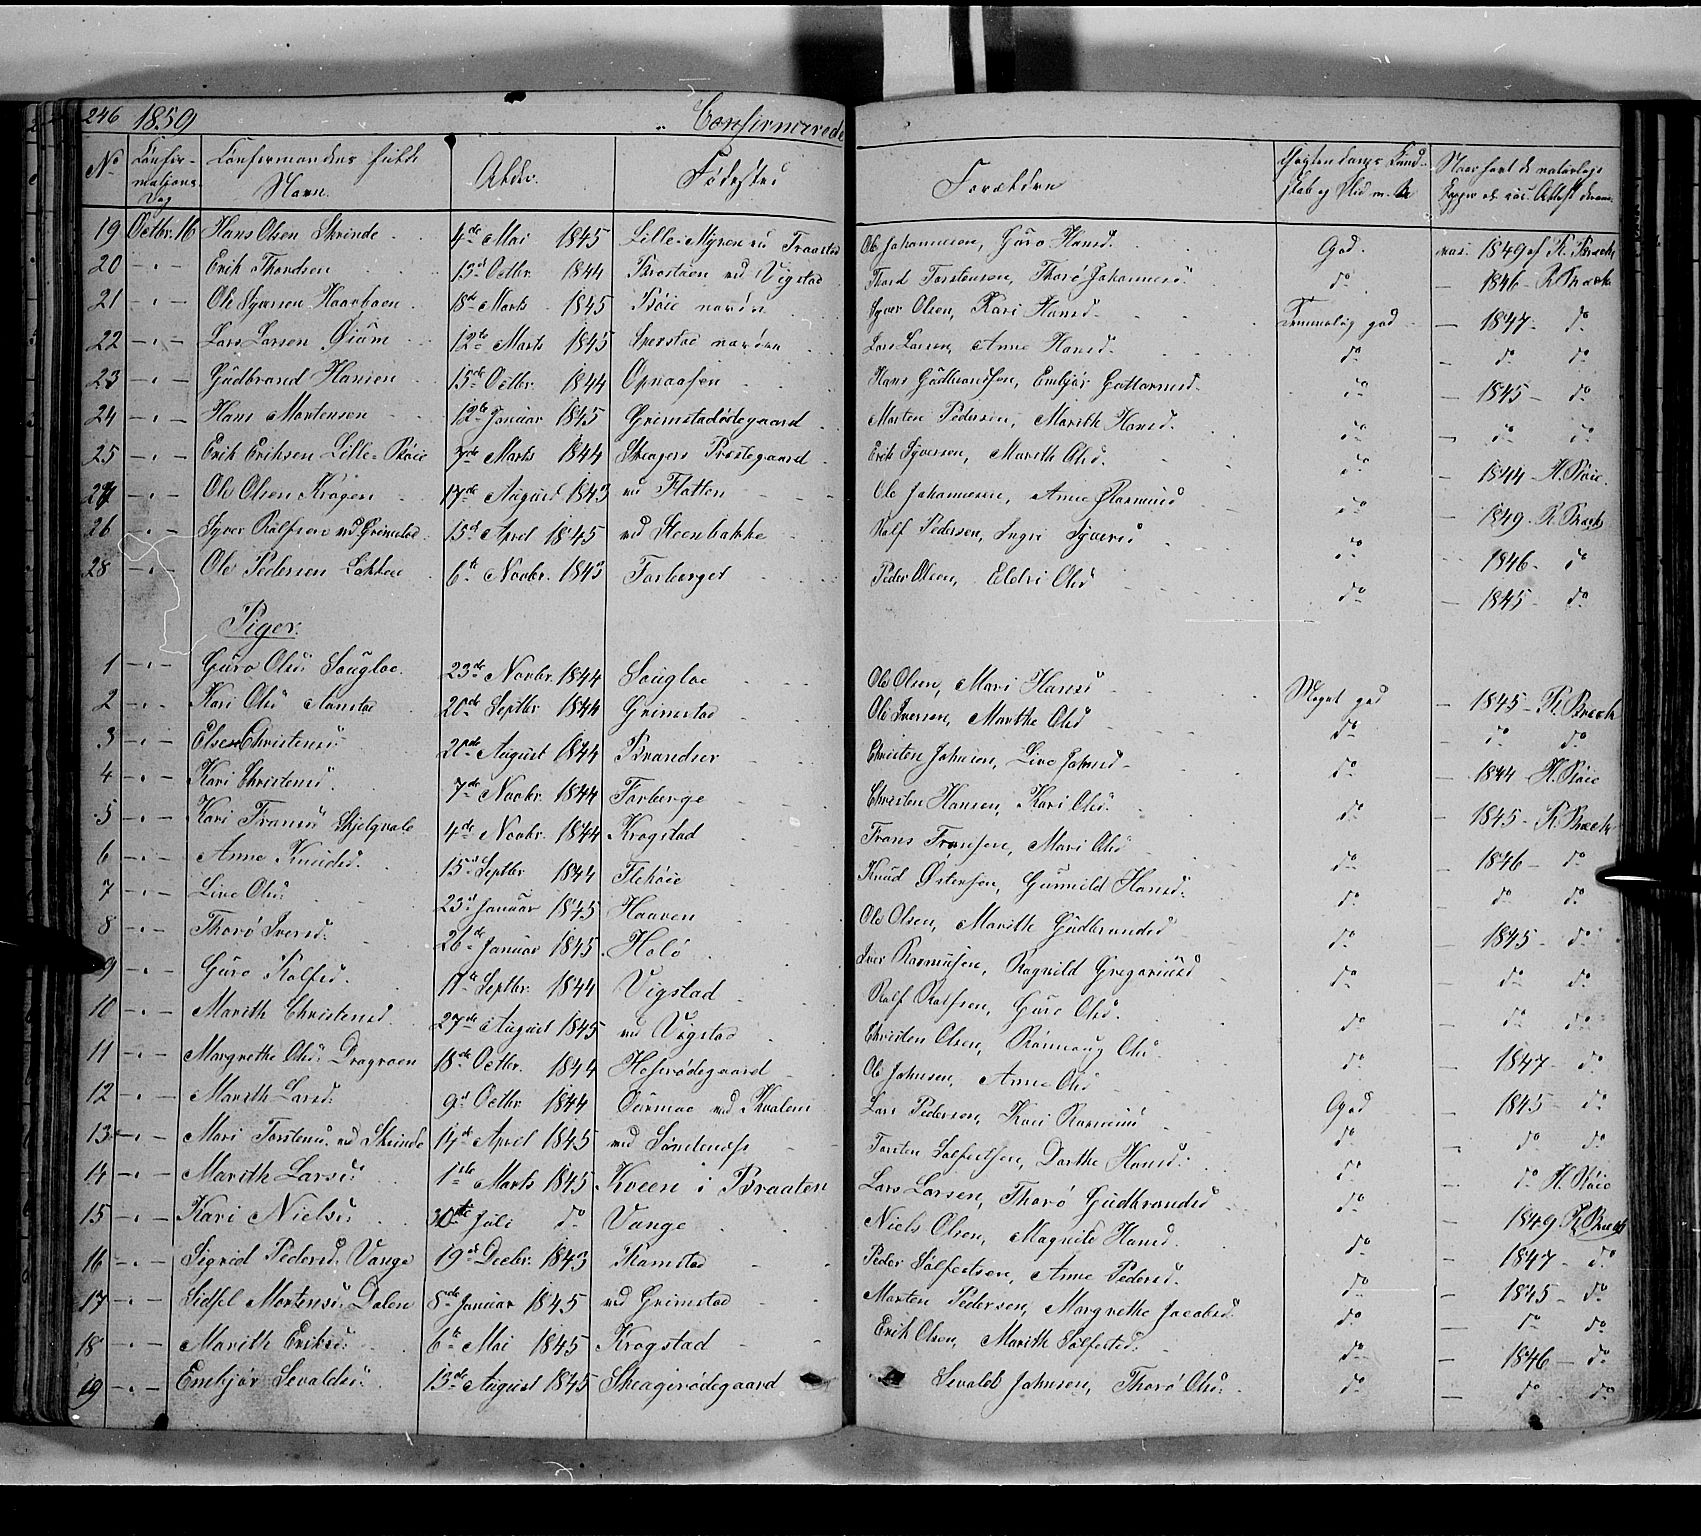 246 1859 Confirmerede
No Confirmations Dag Confirmandens fulde Navn. Alder. Fødested Forældre Christendoms Kundskab og Flid m. m. Naar havt de naturlige Kopper el. vac. Attest derom
19 Octbr. 16 Hans Olsen Skrinde 4de Mai 1845 Lille-Myren v. Fraastad Ole Johannesen, Guro Hansd. God. vac. 1849 af R. Bræck
20 - " - Erik Thordsen 13d Octbr. 1844 Brostuen ved Vigstad Thord Torstensen, Thorø Johannesd: do - 1846 - R. Bræck
21 - " - Ole Syversen Haachaen 18d Marts 1845 Bøie nordre Syver Olsen, Kari Hansd. Temmelig god - 1847 - do
22 - " - Lars Larsen Øium 12te Marts 1845 Sperstad nordre Lars Larsen, Anne Hansd. do - do do
23 - " - Gudbrand Hansen 15de Octbr. 1844 Opsaasen Hans Gudbrandsen, Embjør Guttormsd. do - 1845 - do
24 - " - Hans Mortensen 12te Januar 1845 Grimstadødegaard Morten Pedersen, Marith Hansd. do - do do
25 - " - Erik Eriksen Lille-Bøie 3de Marts 1844 Skeagers Præstegaard Erik Syversen, Marith Olsd. do - 1844 H. Bøie.
27 - " - Ole Olsen Krogen 17de August 1843 v. Flatten Ole Johannesen, Anne Rasmusd do - 1849 - R. Bræck
26 - " - Syver Rolfsen ved Grimstad 15d April 1845 ved Steenbakke Rolf Pedersen, Ingri Syversd do - 1846 - do
28 - " - Ole Pedersen Løkken 6te Novbr. 1843 Forberget Peder Olsen, Eldri Olsd do - 1845 - do
Piger.
1 - " - Guro Olsd: Saugloe 23de Novbr. 1844 Saugloe Ole Olsen, Mari Hansd Meget god - 1845 - R. Bræck
2 - " - Kari Olsd Aanstad 20de Septbr 1844 Grimstad Ole Iversen, Marthe Olsd do - do do
3 - " - Else Christensd 20de August 1844 Brandser Christen Johnsen, Live Johnsd. do - 1844 H. Bøie
4 - " - Kari Christensd. 7de Novbr. 1844 Forberge Christen Hansen, Kari Olsd. do - 1845 - R. Bræck
5 - " - Kari Fransd Skjelqvale 4de Novbr. 1844 Krogstad Frans Fransen, Mari Olsd do - 1846 - do
6 - " - Anne Knudsd. 15d Septbr 1844 Flekøie Knud Østensen, Gunnild Hansd. do - do do
7 - " - Live Olsd: 23d Januar 1845 Haaven Ole Olsen, Marith Gudbrandsd do - 1845 - do
8 - " - Thorø Iversd. 26de Januar 1845 Holø Iver Rasmusen, Ragnild Gregoriusd do - do do
9 - " - Guro Rolfsd. 11te Septbr. 1844 Vigstad Rolf Rolfsen, Guro Olsd. do - do do
10 - " - Marith Christensd 27de August 1845 ved Vigstad Christen Olsen, Rønnaug Olsd do - 1847 do
11 - " - Margrethe Olsd: Dragvoen 18de Octbr. 1844 Hofsødegaard Ole Johnsen, Anne Olsd do - 1845 - do
12 - " - Marith Larsd: 9d Octbr 1844 Lars Pedersen, Kari Rasmusd God - do do
13 - " - Mari Torstensd. ved Skrinde 14de April 1845 ved Torsten Solfestsen, Dorthe Hansd: do - do H. Bøie
14 - " - Marith Larsd: 1ste Marts 1845 Kveen i Braaten Lars Larsen, Thorø Gudbrandsd do - 1849 R. Bræck
15 - " - Kari Nielsd: 30te Juli do Vange Niels Olsen, Magnild Hansd. do - 1847 - do
16 - " - Sigrid Pedersd. Vange 19d Decbr. 1843 Ramstad Peder Solfestsen, Anne Pedersd. do - 1845 - do
17 - " - Sidsel Mortensd: Dalen 8de Januar 1845 ved Grimstad Morten Pedersen, Margrethe Jacobsd. do - do do
18 - " - Marith Eriksd: 6te Mai 1845 Krogstad Erik Olsen, Marith Solfestsd. do - 1846 - do
19 - " - Embjør Sevaldsd: 13de August 1845 Skeagerødegaard Sevald Johnsen, Thorø Olsd: do - do - do